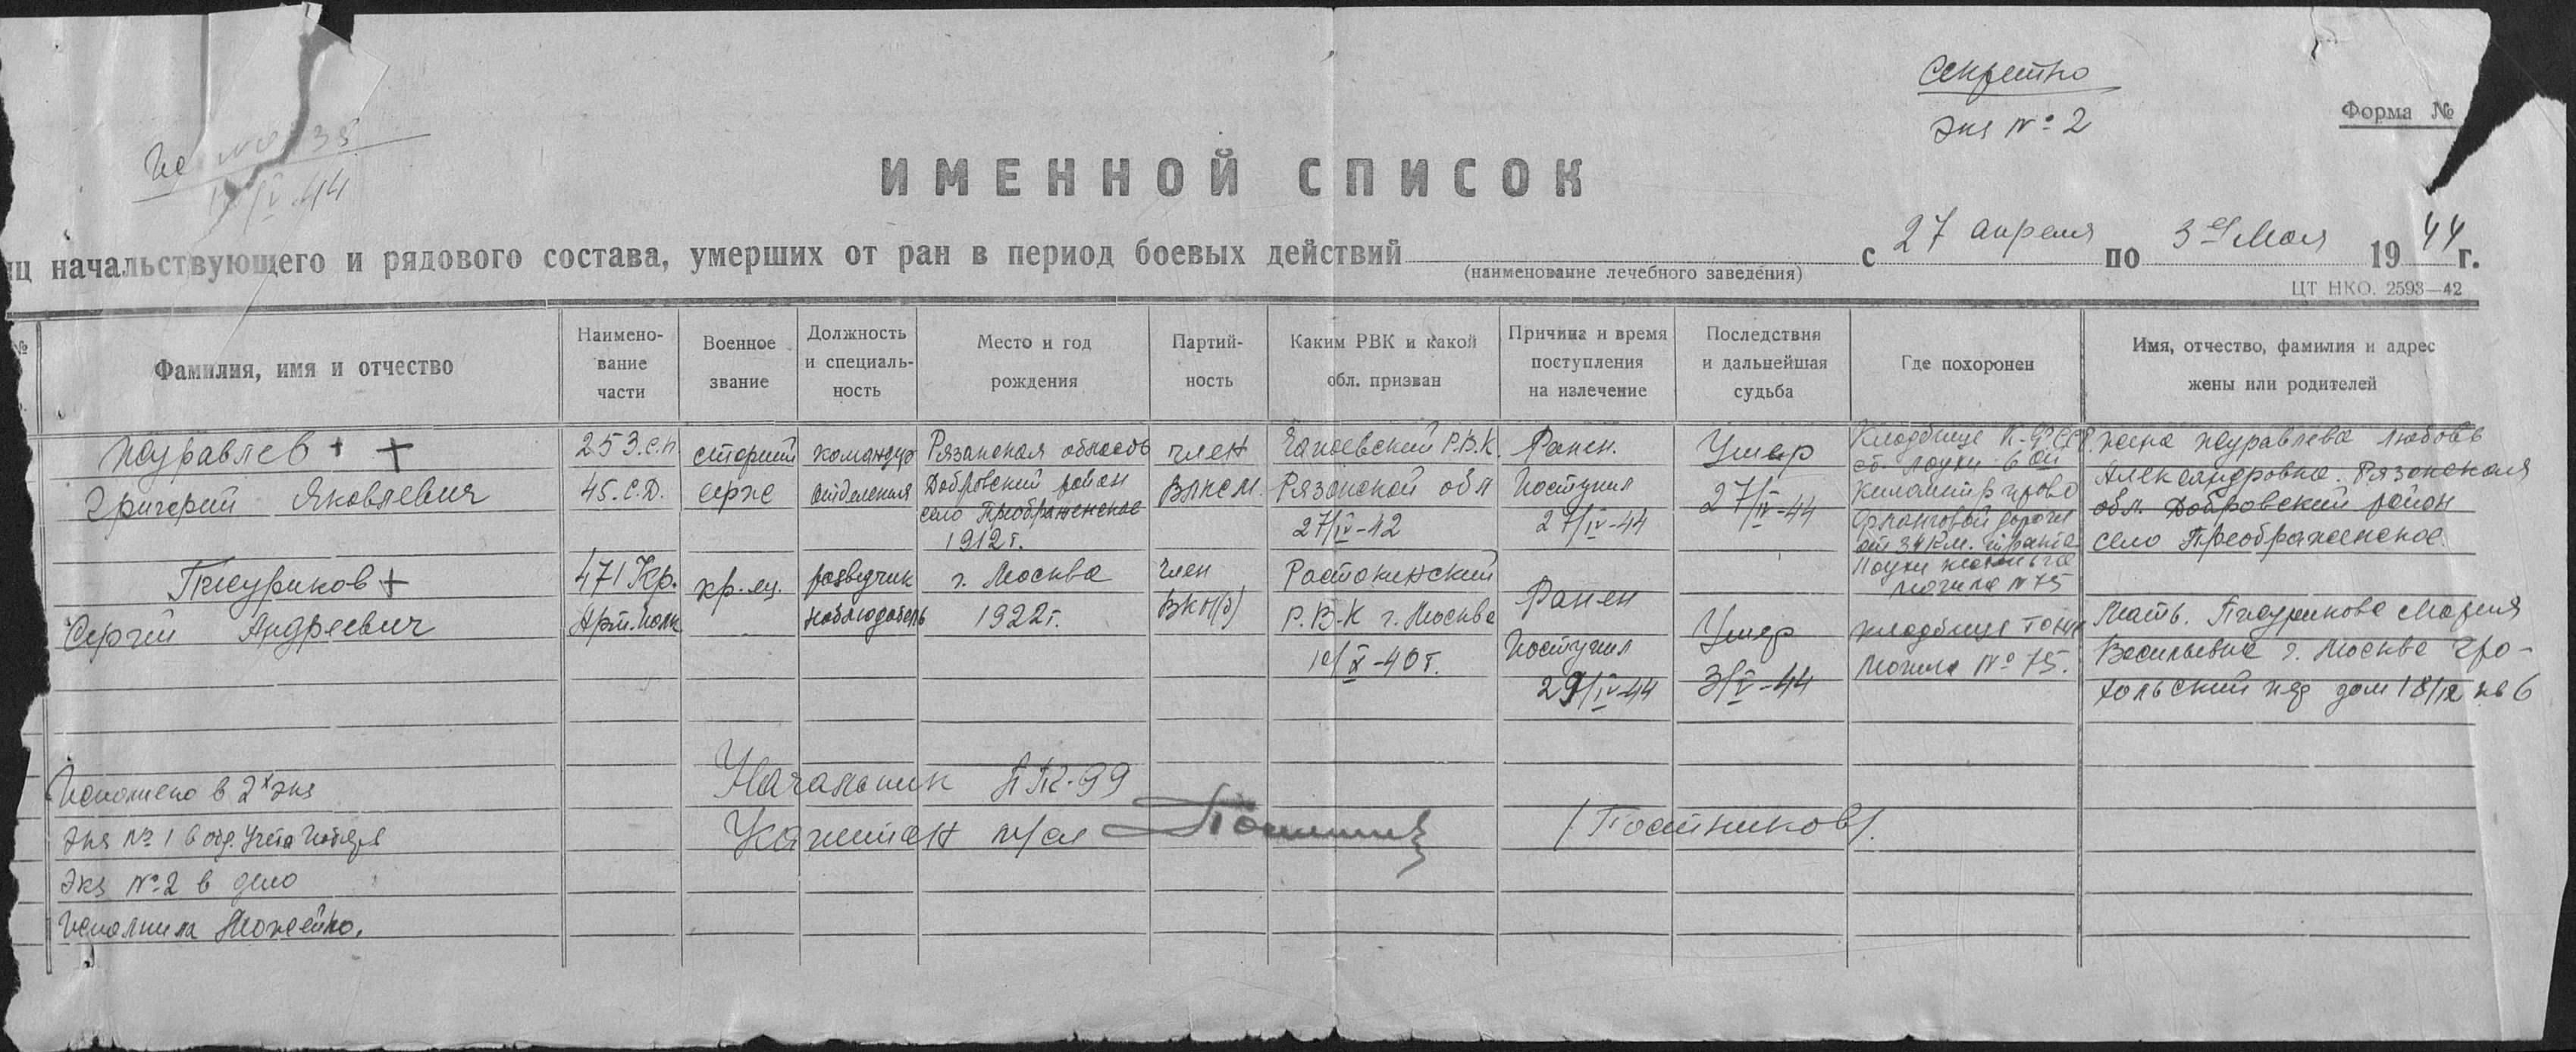 Секретно
Экз №-2
Форма №
Вх № 35
/V-44
ИМЕННОЙ СПИСОК
иц начальствующего и рядового состава, умерших от ран в период боевых действий с 27 апреля по 3ей Мая 1944 г.
(наименование лечебного заведения)
ЦТ НКО. 2593—42
№
Фамилия, имя и отчество
Наимено-
вание
части
Военное
звание
Должность
и специаль-
ность
Место и год
рождения
Партий-
ность
Каким РВК и какой
обл. призван
Причина и время
поступления
на излечение
Последствия
и дальнейшая
судьба
Где похоронен
Имя, отчество, фамилия и адрес
жены или родителей
Журавлев + +
Григорий Яковлевич
253.с.п
45.С.Д.
старший
серж
командир
отделения
Рязанская область
Добровский район
село Преображенское
1912г.
член
ВЛКСМ.
Р.В.К.
Рязанской обл
27/IV-42
Ранен.
Поступил
27/IV-44
Умер
27/IV-44
Кладбище К-ФССР.
ст. Лоухи 6ой
километр
дороги
от 34 км.
Лоухи
могила №75
жена Журавлева Любовь
Александровна. Рязанская
обл. Добровский район
село Преображенское.
Пжуриков +
Сергей Андреевич
471 Кр.
Арт. Полк
кр-ец.
разведчик
наблюдатель
г. Москва
1922г.
член
ВКП(б)
Ростокинский
Р.В-К г. Москва
10/X-40г.
Ранен
Поступил
29/IV-44
Умер
3/V-44
кладбище тоже
Могила №-75.
Мать. Пжурикова Мария
Васильевна г. Москва Гро-
хольский пер дом 18/12 кв 6
Исполнено в 2х экз
Экз № 1 в отд. учета потерь
Экз №-2 в дело
Исполнила
Начальник ППГ-99
Капитан м/сл /Постников/.